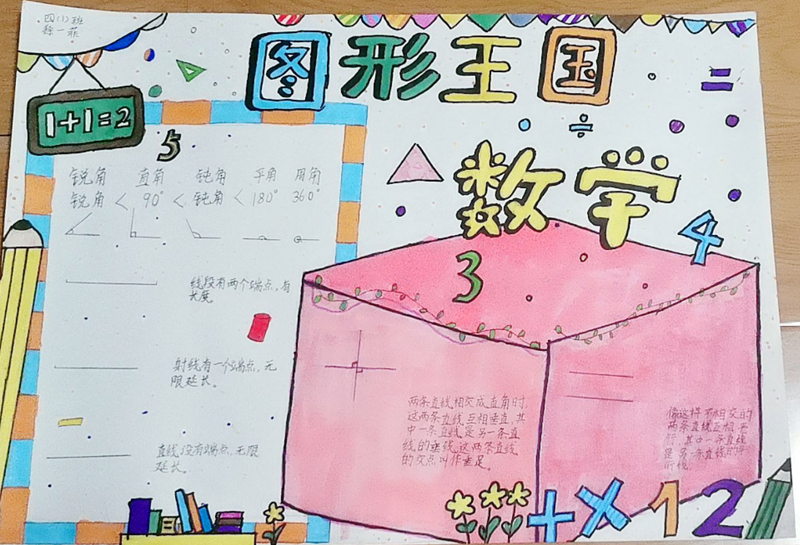 四(1)班
徐一菲
图形王国
1+1=2
=
÷
数学
5
锐角 直角 钝角 平角 周角
锐角 < 90° < 钝角 < 180° 360°
3
4
线段有两个端点,有
长度
射线有一个端点,无
限延长。
直线没有端点,无限
延长。
两条直线相交成直角时,
这两条直线互相垂直,其
中一条直线是另一条直
线的垂线,这两条直线
的交点叫作垂足。
像这样不相交的
两条直线互相平
行,其中一条直线
是另一条直线的平
行线。
+×12